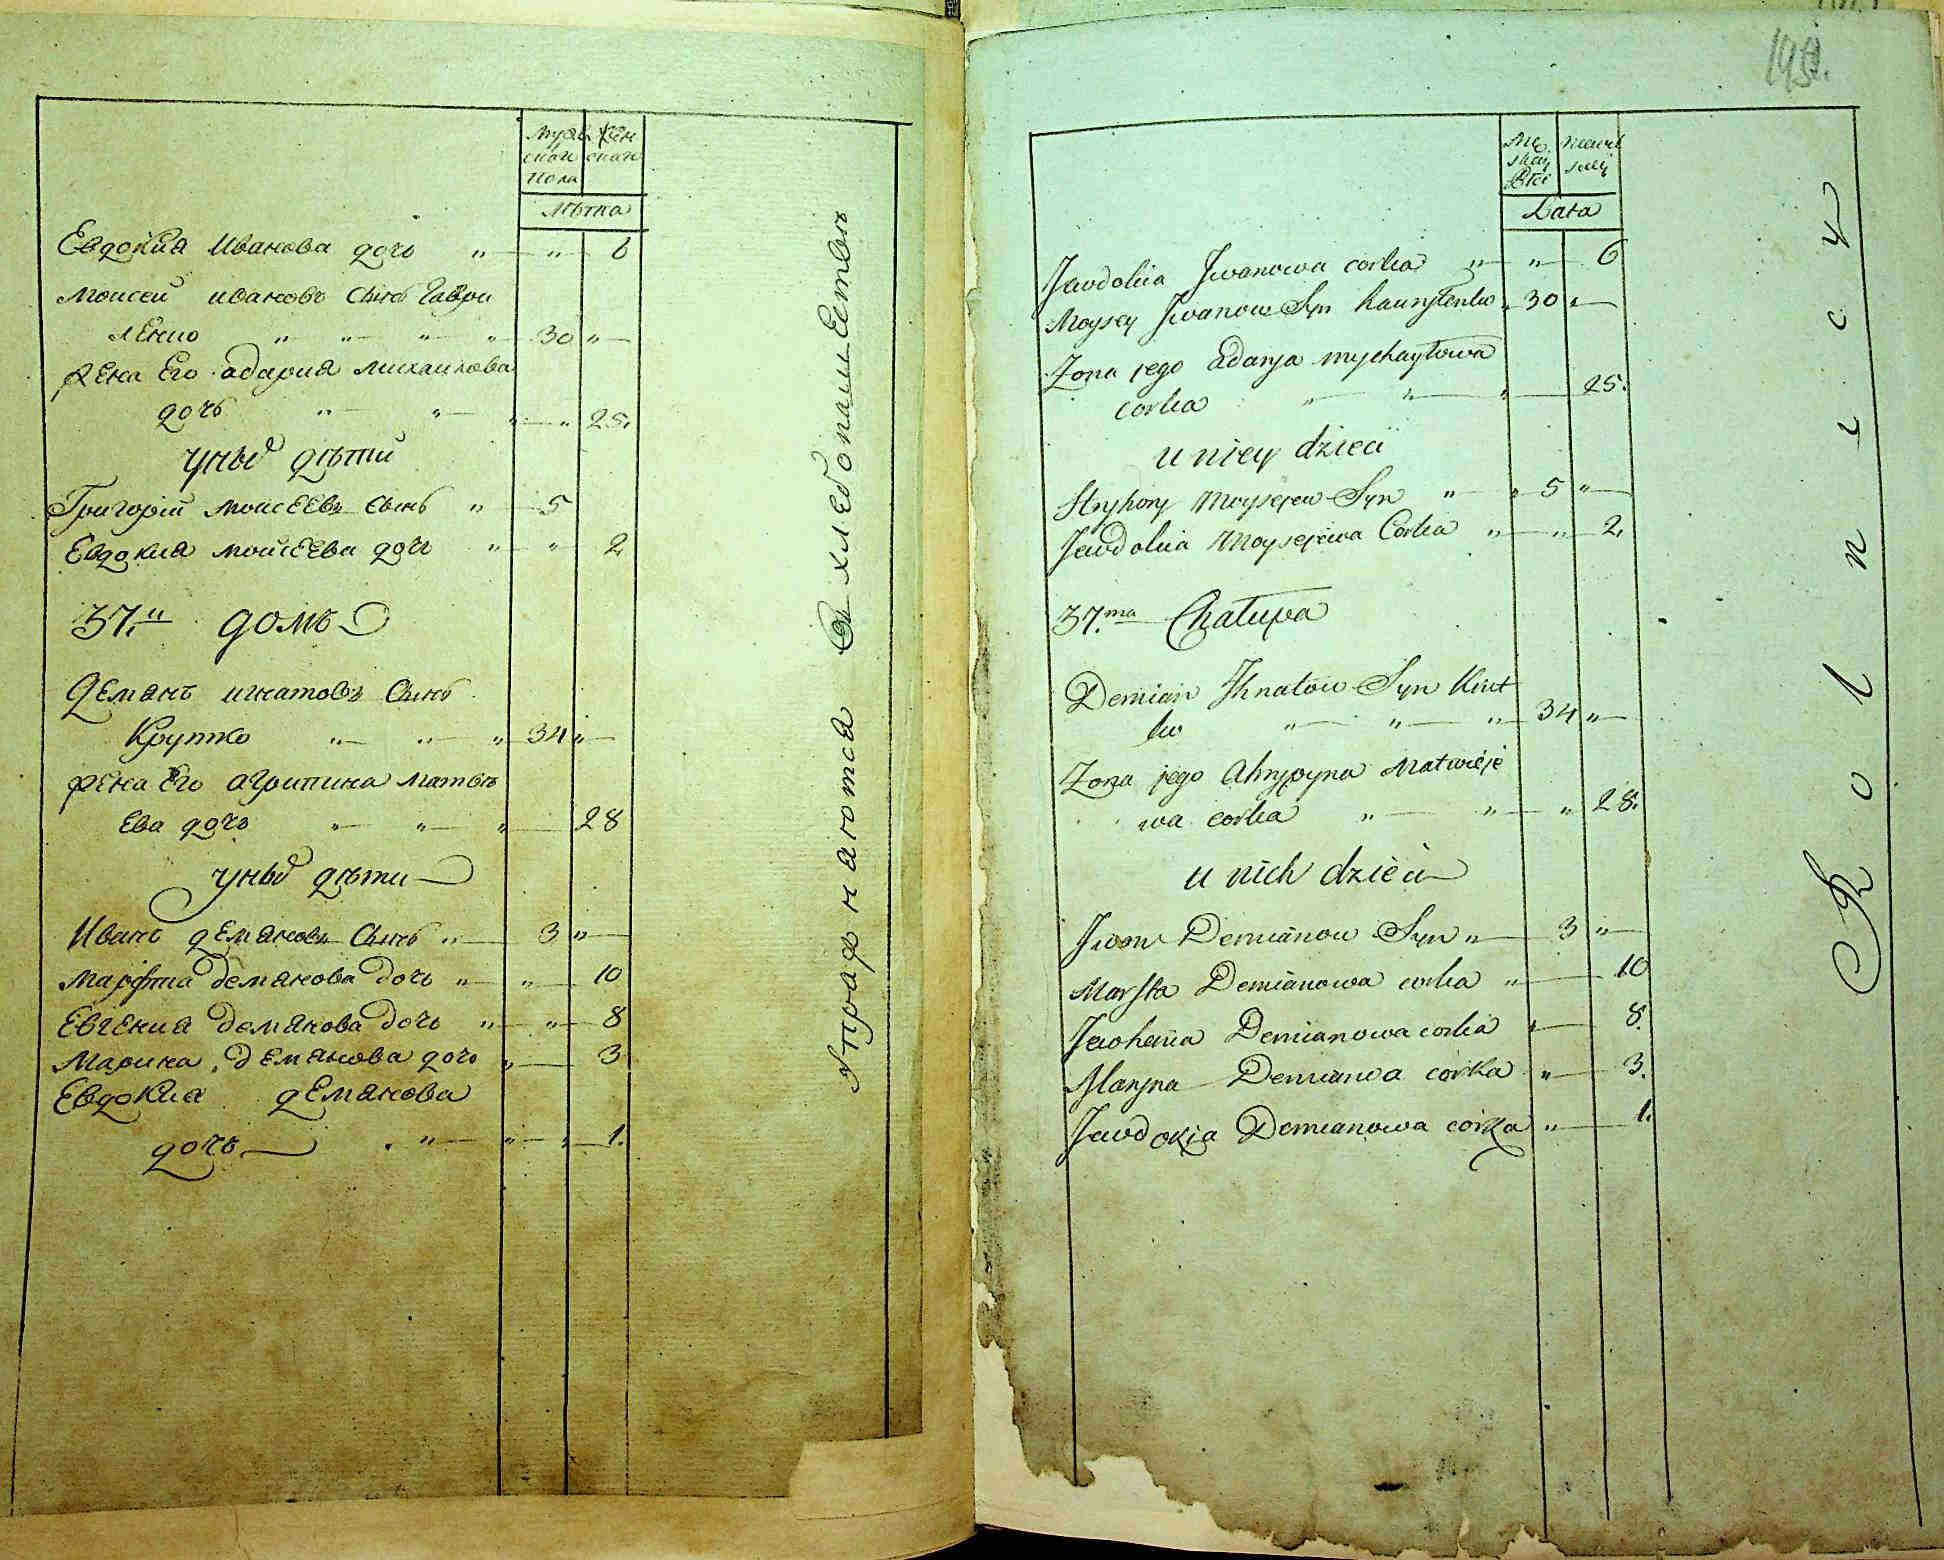 Мужескаго Пола
Женскаго
Лѣта
Евдокия Иванова дочь " " 6
Моисей ивановъ Сынъ Гаври
ленко " " " " 30 "
Жена Его адария михаилова
дочь " " " " 25.
у ныхъ дѣти
Григорий моисеевъ Сынъ " 5
Евдокия моисеева дочь " " 2
37.й домъ
Демянъ игнатовъ Сынъ
Крутко " " " 34 "
жена Его агрипина матвѣ
ева дочь " " " 28
у ныхъ дѣти
Иванъ демяновъ Сынъ " 3 "
марфта демянова дочь " " 10
Евгения демянова дочь " " 8
Марина демянова дочь " 3
Евдокия демянова
дочь " " " 1.
Упражнаются въ хлебопашествѣ
149.
Męskiej Płci
Lata
Jewdokia Jwanowa corka " " 6
Moysey Jwanow Syn hawryłenko " 30 "
Zona jego Adarya mychayłowa
corka " " " 25.
u niey dzieci
Hryhory Moysejew Syn " " 5 "
Jewdokia Moysejewa Corka " " 2.
37.ma Chałupa
Demian Jhnatow Syn Krut
ko " " " 34 "
Zona jego Ahrypyna Matwieje
wa corka " " " 28.
u nich dzieci
Jwan Demianow Syn " 3 "
Marfta Demianowa corka " 10
Jewhenia Demianowa corka " 8.
Maryna Demianowa corka " 3.
Jewdokia Demianowa corka " 1.
Rolnicy